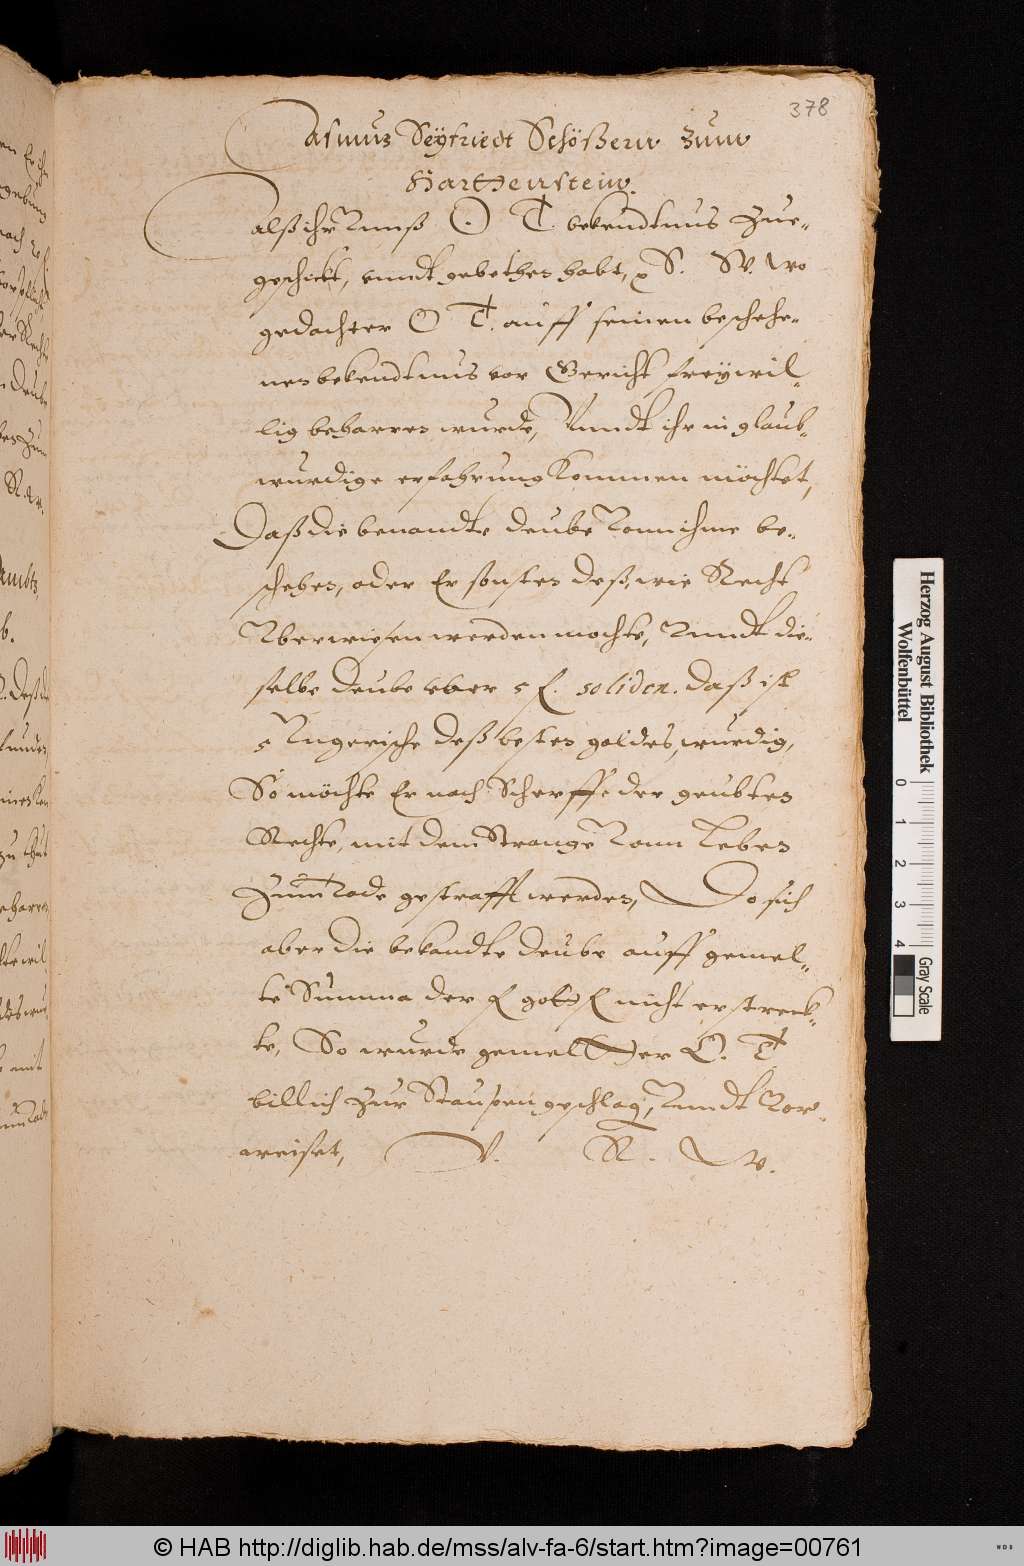 378
Casmus Seÿfriedt Schößern zum
Harttenstein.
alß ihr Vnnß O. T. bekendtnus zue-
geschickt, vnndt gebethen habt, S. W. wo
gedachter O T. auff seinen beschehe-
nen bekendtnus vor Gericht freÿwil-
lig beharren wurde, Vnndt ihr in glaub-
wurdige erfahrung kommen möchtet,
Daß die benandte deube Vonn ihme be-
schehen, oder Er sonsten deß, wie Recht
Vberwiesen werden mochte, Vnndt die-
selbe deube vber 5 f. solidor. daß ist
5 Vngerische deß besten goldes, wurdig,
So möchte Er nach Scherffe der geubten
Rechte, mit dem Strange Vom Leben
Zum Tode gestrafft werden, Do sich
aber die bekandte deube auff gemel-
te Summa der f goltf nicht erstreck-
te, So wurde gemeltter O. T
billich zur Staupen geschlag, Vnndt Vor-
weiset, V. R. W.
Herzog August Bibliothek
Wolfenbüttel
0 1 2 3 4
Gray Scale
© HAB http://diglib.hab.de/mss/alv-fa-6/start.htm?image=00761